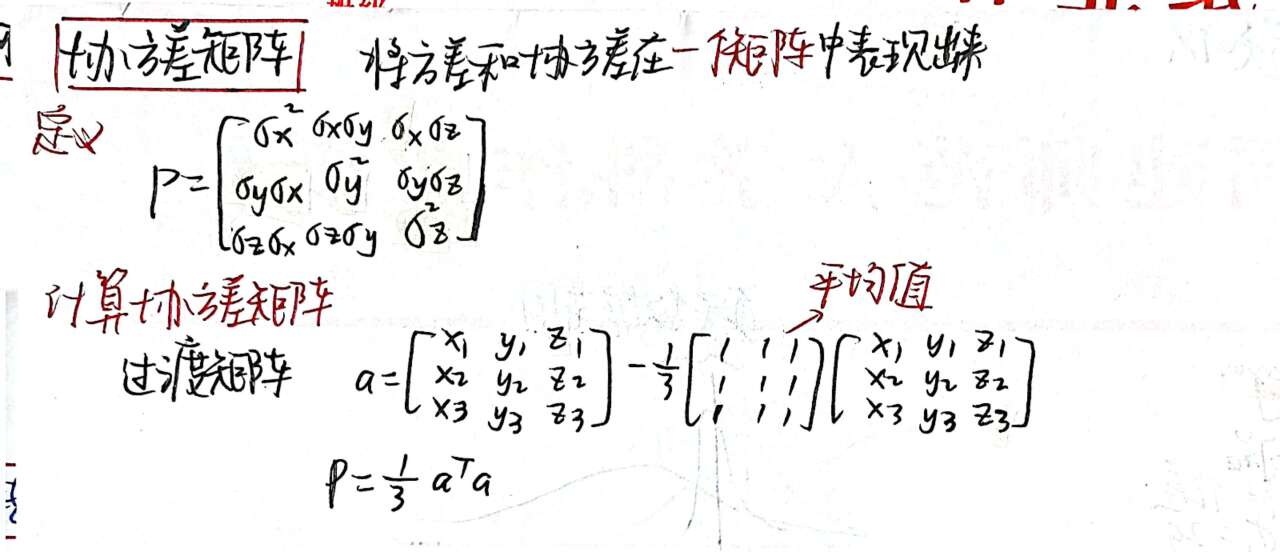 协方差矩阵 将方差和协方差在一个矩阵中表现出来
定义
P = [ σx² σxσy σxσz
σyσx σy² σyσz
σzσx σzσy σz² ]
计算协方差矩阵 平均值
过渡矩阵 a = [ x₁ y₁ z₁ ] - 1/3 [ 1 1 1 ] [ x₁ y₁ z₁ ]
[ x₂ y₂ z₂ ] [ 1 1 1 ] [ x₂ y₂ z₂ ]
[ x₃ y₃ z₃ ] [ 1 1 1 ] [ x₃ y₃ z₃ ]
P = 1/3 aᵀa